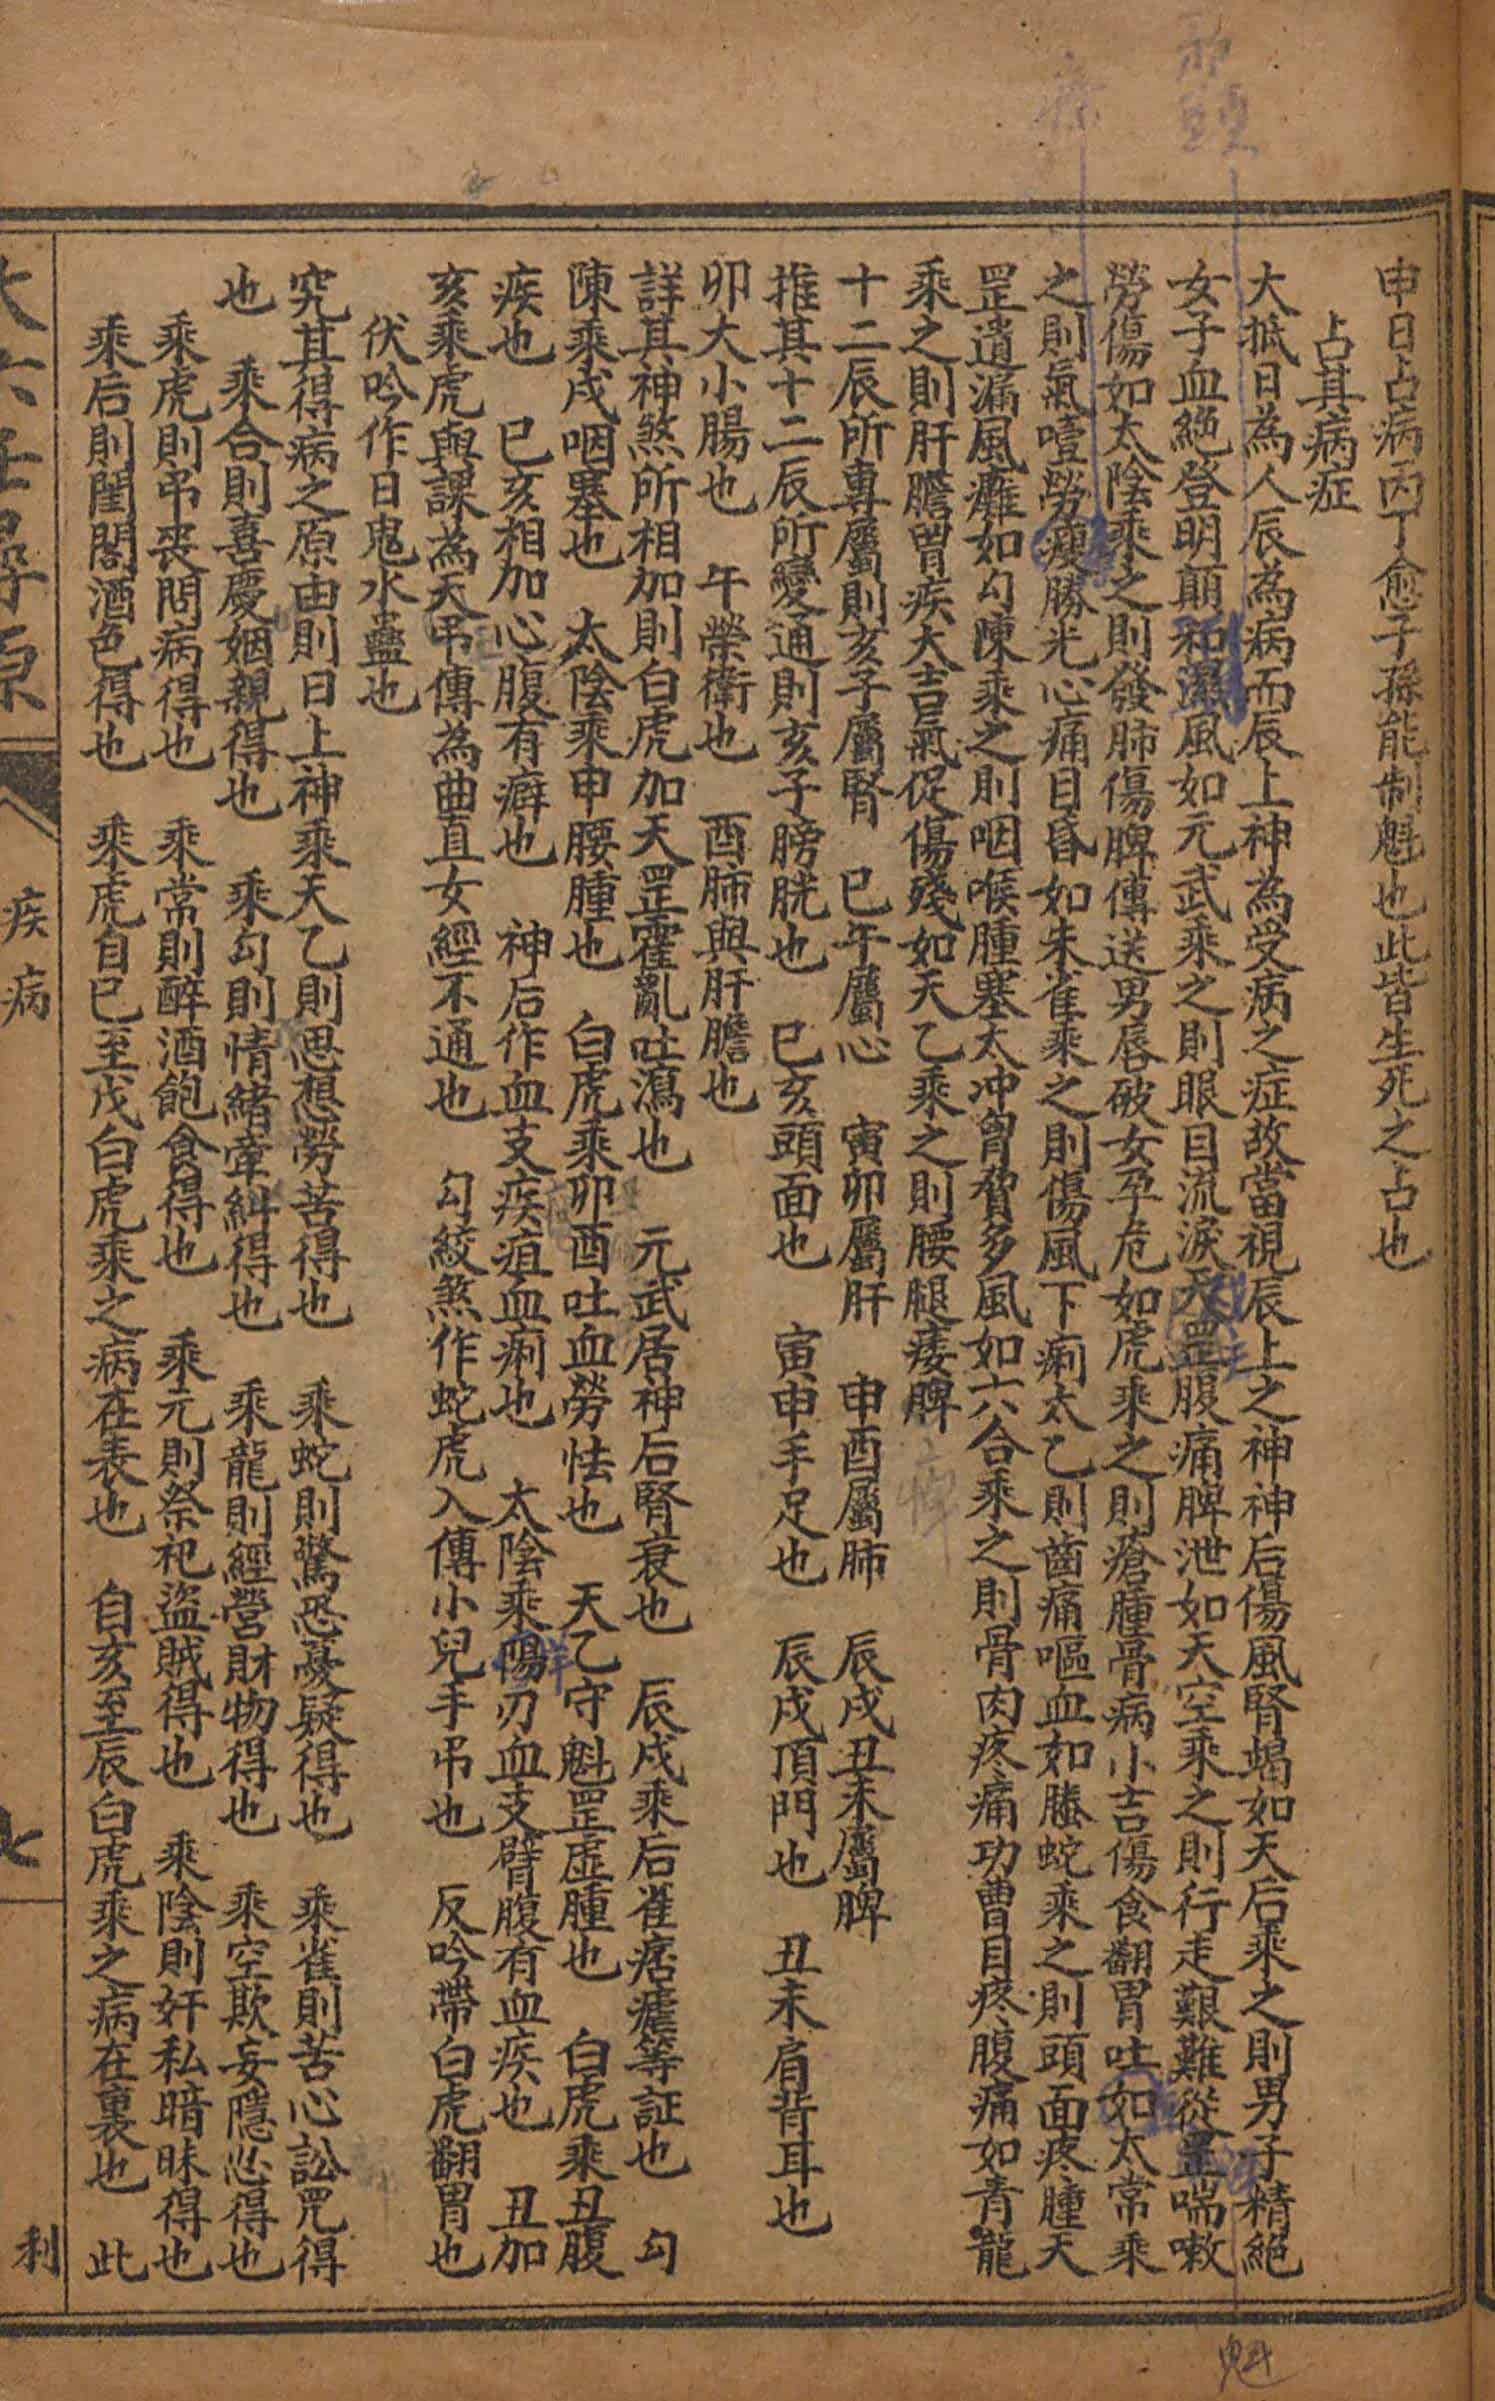 申日占病丙丁愈子孫能制魁也此皆生死之占也
占其病症
大抵日為人辰為病而辰上神為受病之症故當視辰上之神神后傷風腎竭如天后乘之則男子精絕
女子血絕登明顛和濕風如元武乘之則眼目流淚天罡腹痛脾泄如天空乘之則行走艱難從罡喘嗽
勞傷如太陰乘之則發肺傷脾傳送男唇破女孕危如虎乘之則瘡腫骨病小吉傷食翻胃吐如太常乘
之則氣噎勞瘦勝光心痛目昏如朱雀乘之則傷風下痢太乙則齒痛嘔血如螣蛇乘之則頭面疼腫天
罡遺漏風癱如勾陳乘之則咽喉腫塞太冲胷脅多風如六合乘之則骨肉疼痛功曹目疼腹痛如青龍
乘之則肝膽胃疾大吉氣促傷殘如天乙乘之則腰腿痿脾
十二辰所專屬則亥子屬腎　巳午屬心　寅卯屬肝　申酉屬肺　辰戌丑未屬脾
推其十二辰所變通則亥子膀胱也　巳亥頭面也　寅申手足也　辰戌頂門也　丑未肩背耳也
卯大小腸也　午榮衛也　酉肺與肝膽也
詳其神煞所相加則白虎加天罡霍亂吐瀉也　元武居神后腎衰也　辰戌乘后雀痞瘧等証也　勾
陳乘戌咽塞也　太陰乘申腰腫也　白虎乘卯酉吐血勞怯也　天乙守魁罡虛腫也　白虎乘丑腹
疾也　巳亥相加心腹有癖也　神后作血支疾疽血痢也　太陰乘陽刃血支臂腹有血疾也　丑加
亥乘虎與課為天弔傳為曲直女經不通也　勾絞煞作蛇虎入傳小兒手弔也　反吟帶白虎翻胃也
伏吟作日鬼水蠱也
究其得病之原由則日上神乘天乙則思想勞苦得也　乘蛇則驚恐憂疑得也　乘雀則苦心訟咒得
也　乘合則喜慶姻親得也　乘勾則情緒牽糾得也　乘龍則經營財物得也　乘空欺妄隱忿得也
乘虎則弔喪問病得也　乘常則醉酒飽食得也　乘元則祭祀盜賊得也　乘陰則奸私暗昧得也
乘后則閨閣酒色得也　乘虎自巳至戊白虎乘之病在表也　自亥至辰白虎乘之病在裏也　此
疾病
利
魁